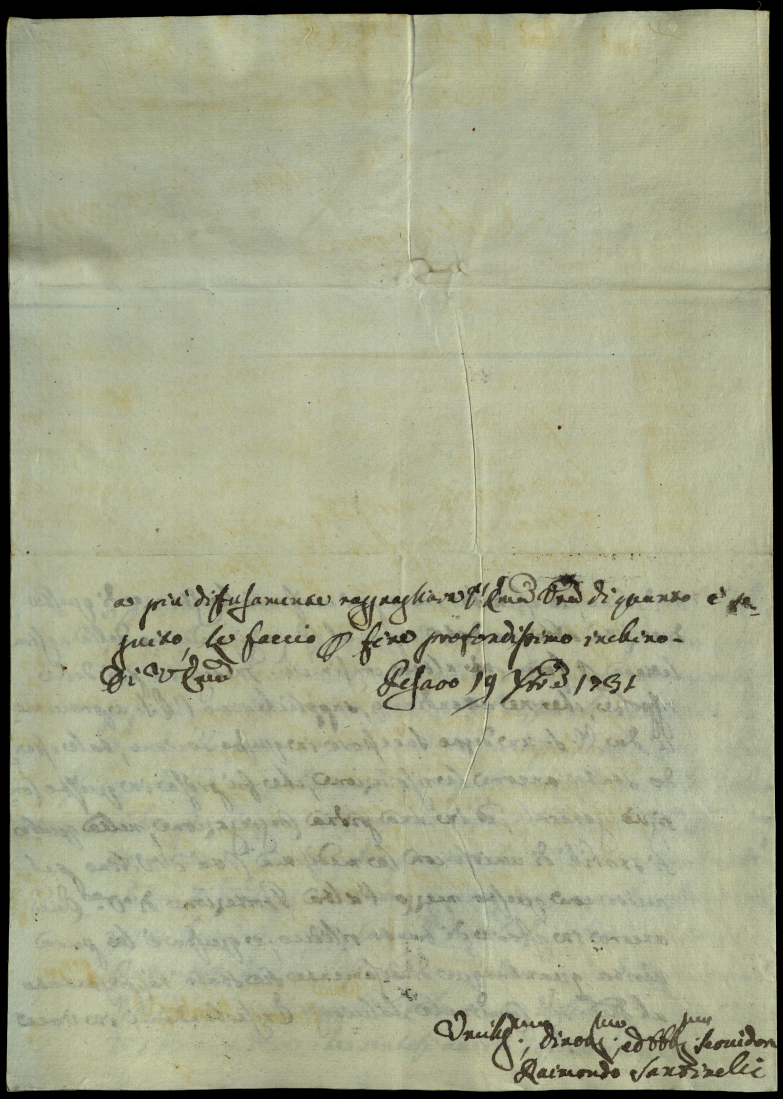 a più diffusamente ragguagliare l'Em.ª V.ra di quanto è se-
guito, le faccio p fine profondissimo inchino -
Di V. Em.ª Pesaro 19 Xbre 1731
Umiliss.mo, divotiss.mo, ed obblig.mo Servidore
Raimondo Santinelli